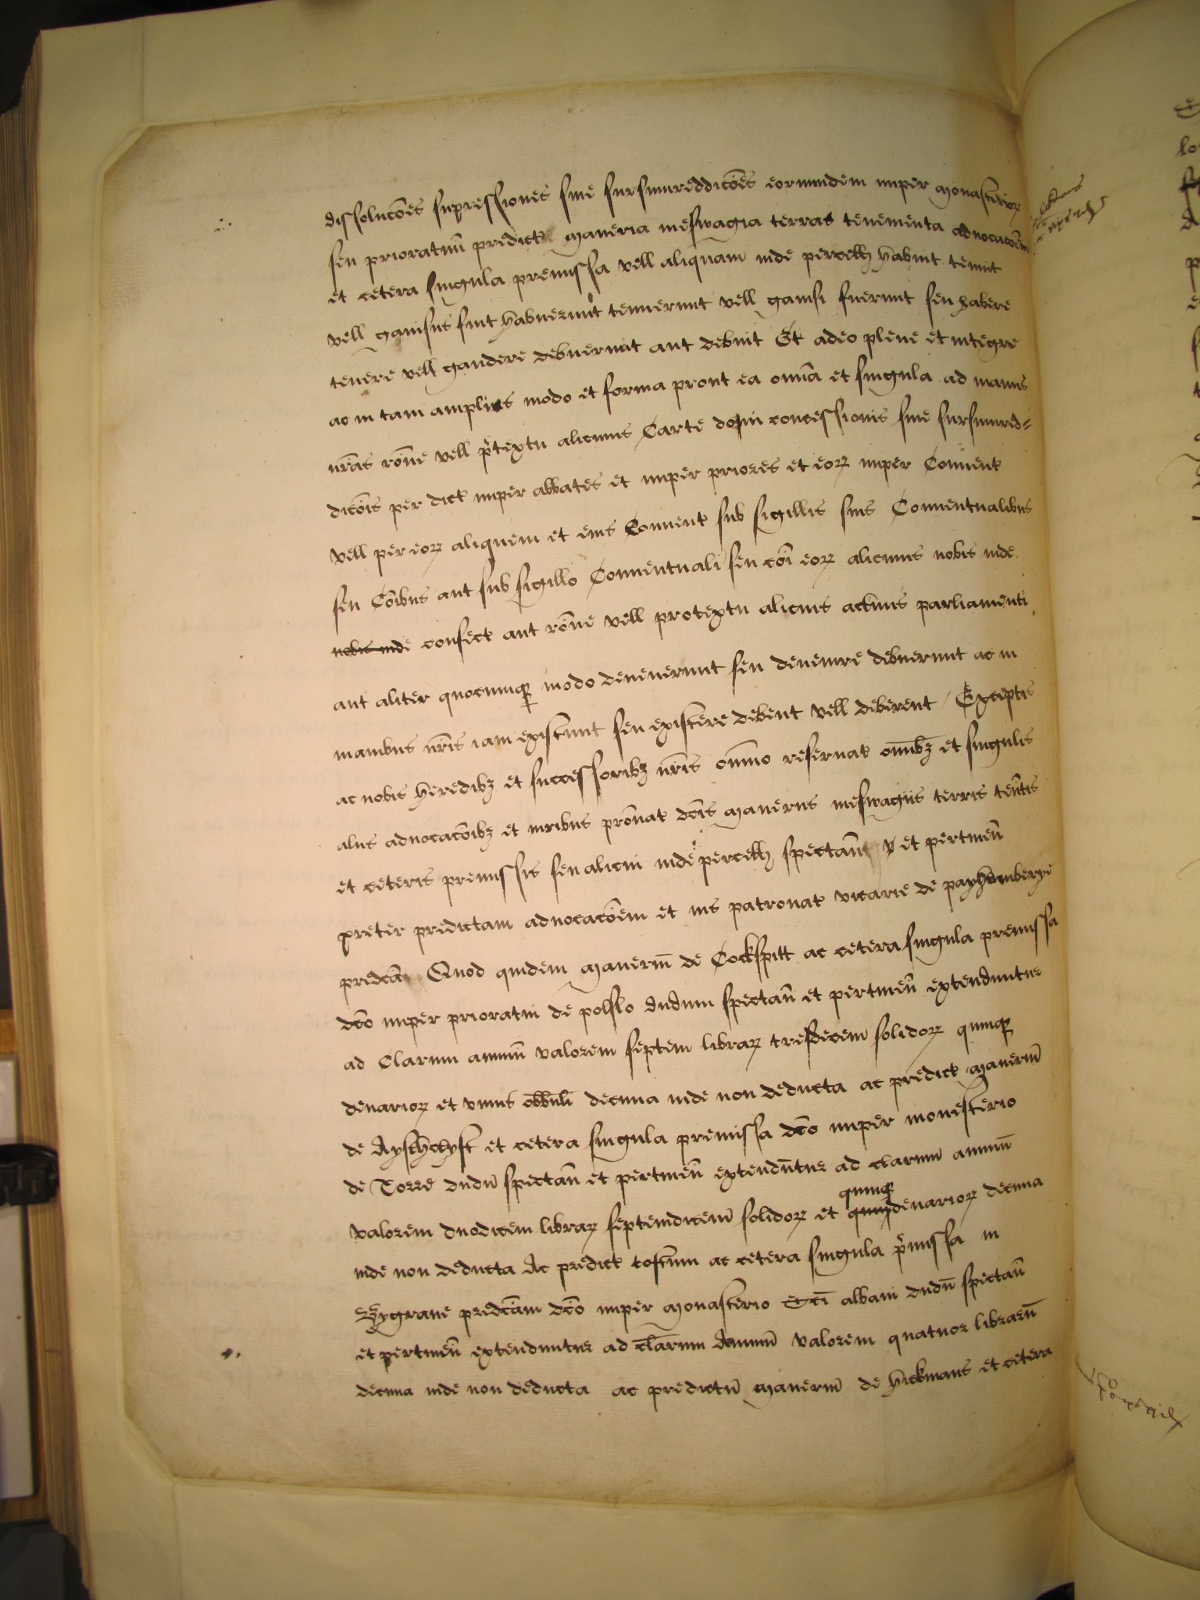 dissoluco͞es supressiones sive sursumreddico͞es eorumdem nuper monasterioꝝ
seu prioratuu͞ predict maneria meswagia terras tenementa advocaco͞em
et cetera singula premissa vell aliquam inde percell h͞abuit tenuit
vell gavisus fuit h͞abuerunt tenuerunt vell gavisi fuerunt seu habere
tenere vell gaudere debuerunt aut debuit Et adeo plene et integre
ac in tam amplis modo et forma prout ea omi͞a et singula ad manus
nr͞as ro͞ne vell p͞textu alicuius Carte doni concessionis sive sursumred=
dico͞is per dict nuper abbates et nuper priores et eoꝝ nuper Convent
vell per eoꝝ aliquem et eius Convent sub sigillis suis Conventualibus
seu Co͞ibus aut sub sigillo Conventuali seu co͞i eoꝝ alicuius nobis inde
nobis inde confect aut ro͞ne vell protextu alicuius actus parliamenti
aut aliter quocumqꝫ modo devenerunt seu devenire debuerunt ac in
manibus nr͞is iam existunt seu existere debent vell deberent / Exceptis
ac nobis heredibꝫ et successoribꝫ nr͞is omnino reservat om͞ibꝫ et singulis
aliis advocaco͞ibꝫ et iuribus pro͞nat dc͞is maneriis meswagiis terris ten͞tis
et ceteris premissis seu alicui inde percell spectan͞ et pertinen͞
preter predictam advocaco͞em et ius patronat vicarie de payhembery
predc͞a Quod quidem maneriu͞ de Cockspitt ac cetera singula premissa
dc͞o nuper prioratui de polslo dudum spectan͞ et pertinen͞ extenduntur
ad clarum annuu͞ valorem septem libraꝝ tresdecem solidoꝝ quinqꝫ
denarioꝝ et unius obbuli decima inde non deducta ac predict maneriu͞
de Ayshclyst et cetera singula premissa dc͞o nuper monesterio
de Torre dudu͞ spectan͞ et pertinen͞ extendu͞tur ad clarum annuu͞
valorem duodecem libraꝝ septemdicem͞ solidoꝝ et quinqꝫ denarioꝝ decima
inde non deducta Ac predict toftum ac cetera singula p͞missa in
predc͞am dc͞o nuper monasterio Sc͞i albani dudu͞ spectan͞
et pertinen͞ extenduntur ad clarum Annuu͞ valorem quatuor libraru͞
decima inde non deducta ac predictu͞ maneriu͞ de hickmans et cetera